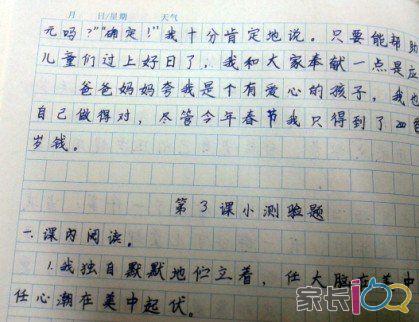 月 日/星期 天气
元吗?”“确定!”我十分肯定地说。只要能帮助
儿童们过上好日了,我和大家奉献一点是应
爸爸妈妈夸我是个有爱心的孩子,我也
自己做得对,尽管今年春节我只得到了200
岁钱。
第3课小测验题
一.课内阅读。
1.我独自默默地伫立着,任大脑在美中
任心潮在美中起伏。
家长100